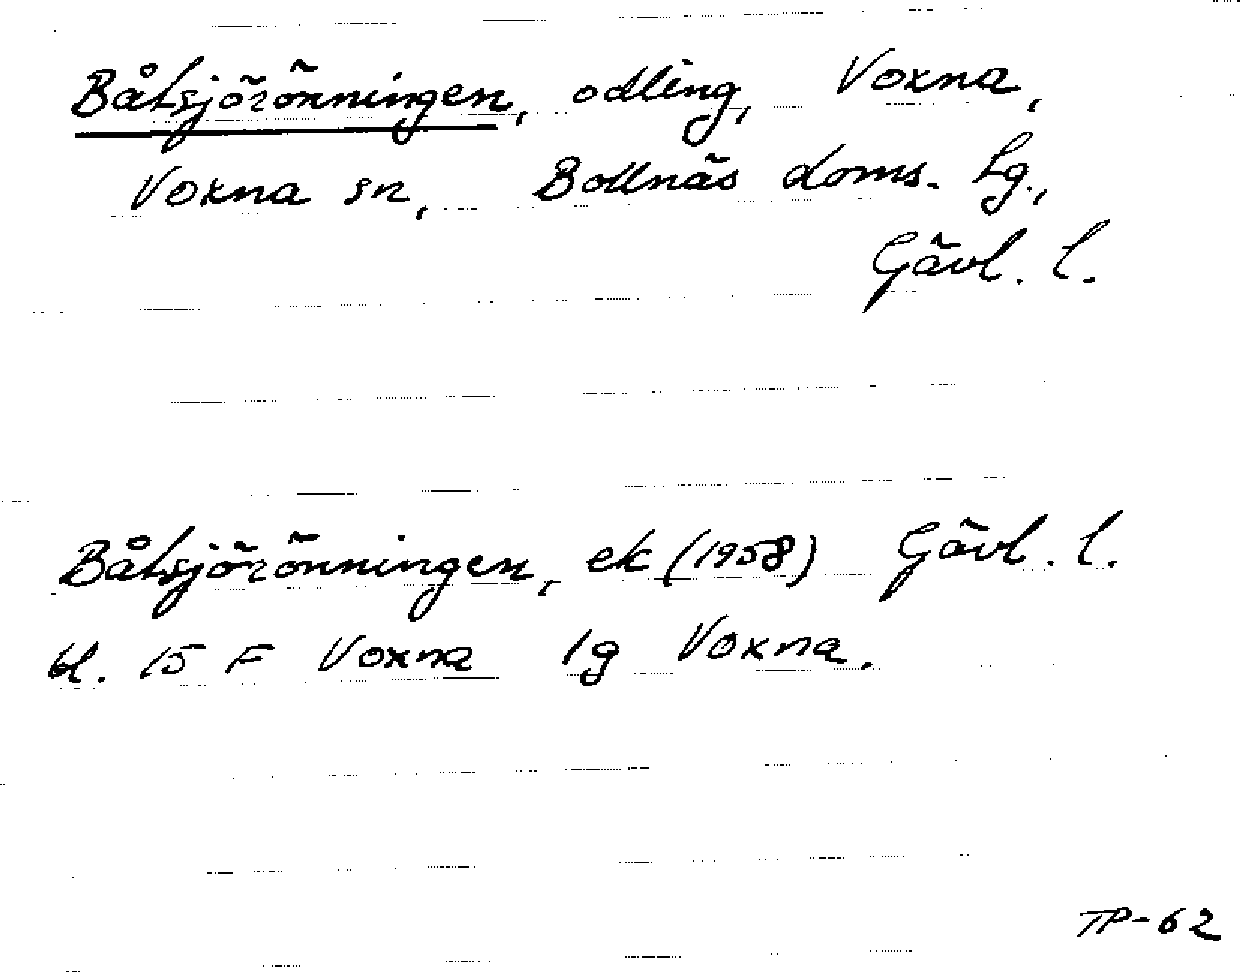 Båtsjörönningen, odling, Voxna,
Voxna sn, Bollnäs doms. lg.,
Gävl. l.
Båtsjörönningen, ek (1958) Gävl. l.
bl. 15 F Voxna 1g Voxna.
TP-62